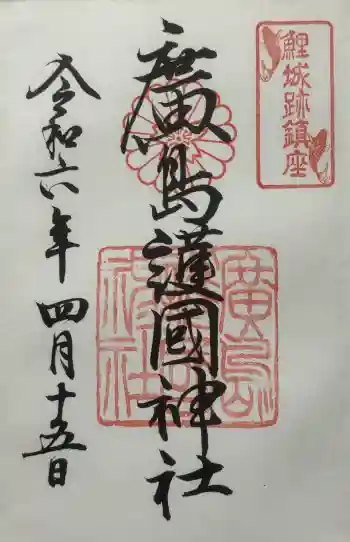 鯉城跡鎮座
廣島護國神社
廣島護國神社
令和六年四月十五日